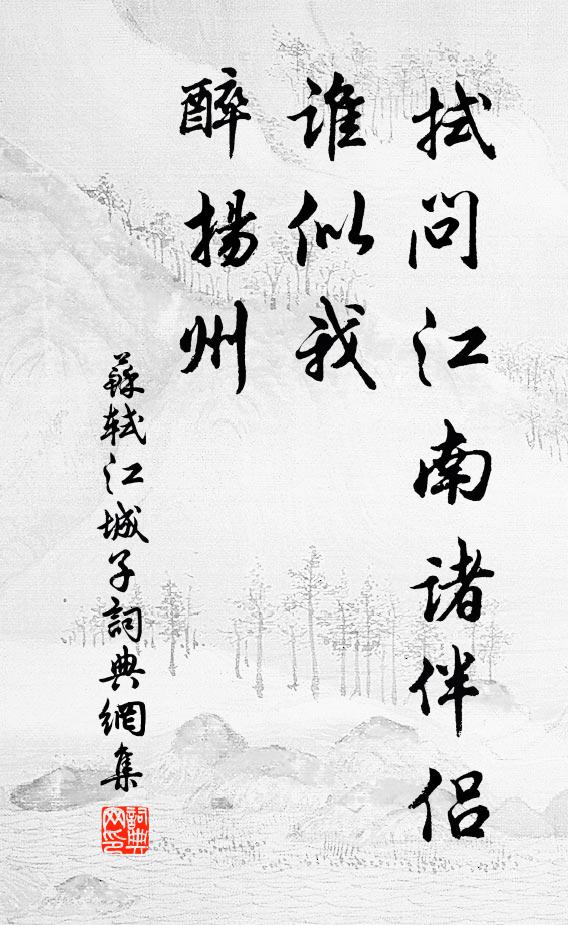 拭問江南諸伴侶
誰似我
醉揚州
蘇軾江城子詞典網集
詞典网印